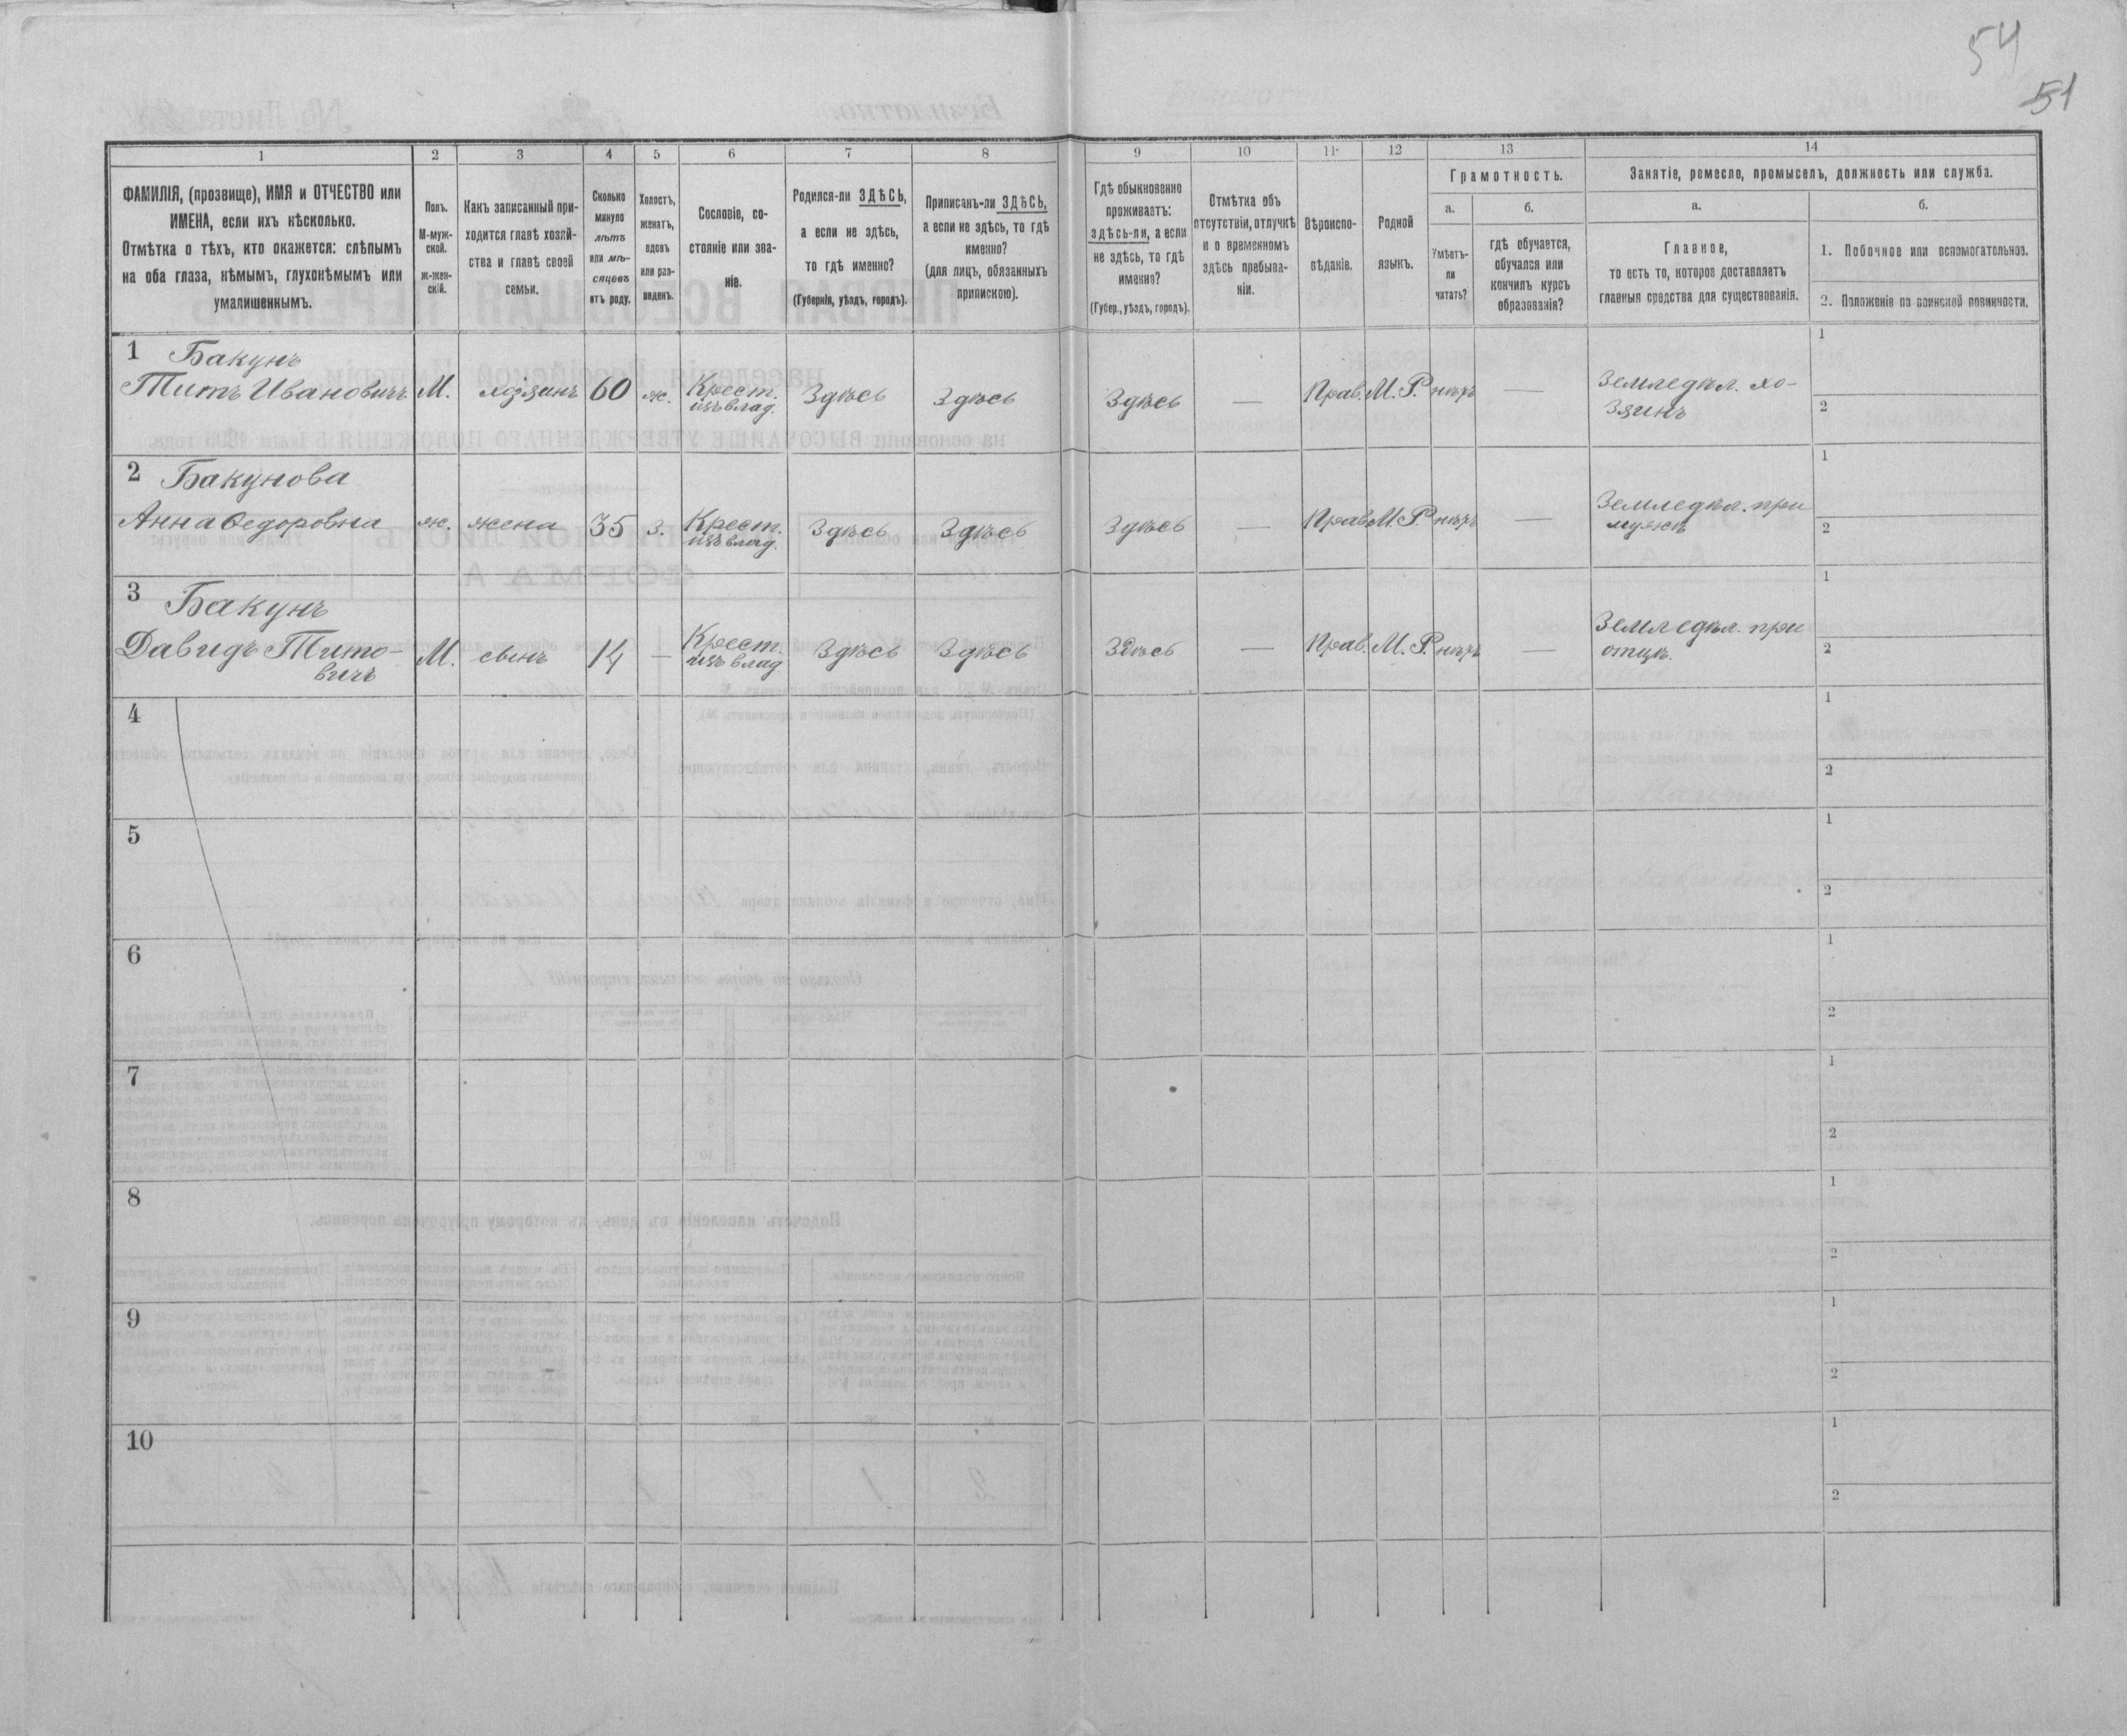 54
51
1
2
3
4
5
6
7
8
9
10
11
12
13
14
ФАМИЛІЯ, (прозвище), ИМЯ и ОТЧЕСТВО или
ИМЕНА, если ихъ нѣсколько.
Отмѣтка о тѣхъ, кто окажется: слѣпымъ
на оба глаза, нѣмымъ, глухонѣмымъ или
умалишеннымъ.
Полъ.
М-муж-
ской.
ж-жен-
скій.
Какъ записанный при-
ходится главѣ хозяй-
ства и главѣ своей
семьи.
Сколько
минуло
лѣтъ
или мѣ-
сяцевъ
отъ роду.
Холостъ,
женатъ,
вдовъ
или раз-
веденъ.
Сословіе, со-
стояніе или зва-
ніе.
Родился-ли ЗДѢСЬ,
а если не здѣсь,
то гдѣ именно?
(Губернія, уѣздъ, городъ).
Приписанъ-ли ЗДѢСЬ,
а если не здѣсь, то гдѣ
именно?
(для лицъ, обязанныхъ
припискою).
Гдѣ обыкновенно
проживаетъ:
здѣсь-ли, а если
не здѣсь, то гдѣ
именно?
(Губер., уѣздъ, городъ).
Отмѣтка объ
отсутствіи, отлучкѣ
и о временномъ
здѣсь пребыва-
ніи.
Вѣроиспо-
вѣданіе.
Родной
языкъ.
Грамотность.
а.
Умѣетъ-
ли
читать?
б.
гдѣ обучается,
обучался или
кончилъ курсъ
образованія?
Занятіе, ремесло, промыселъ, должность или служба.
а.
Главное,
то есть то, которое доставляетъ
главныя средства для существованія.
б.
1. Побочное или вспомогательное.
2. Положеніе по воинской повинности.
1 Бакунъ
Титъ Ивановичъ М. хозяинъ 60 ж. Крест. изъ влад. Здѣсь Здѣсь Здѣсь — Прав. М. Р. нѣтъ — Земледѣл. хо-
зяинъ
1
2
2 Бакунова
Анна Федоровна ж. жена 35 з. Крест. изъ влад. Здѣсь Здѣсь Здѣсь — Прав. М. Р. нѣтъ — Земледѣл. при
мужѣ
1
2
3 Бакунъ
Давидъ Тито-
вичъ М. сынъ 14 — Крест. изъ влад. Здѣсь Здѣсь Здѣсь — Прав. М. Р. нѣтъ — Земледѣл. при
отцѣ.
1
2
4
1
2
5
1
2
6
1
2
7
1
2
8
1
2
9
1
2
10
1
2